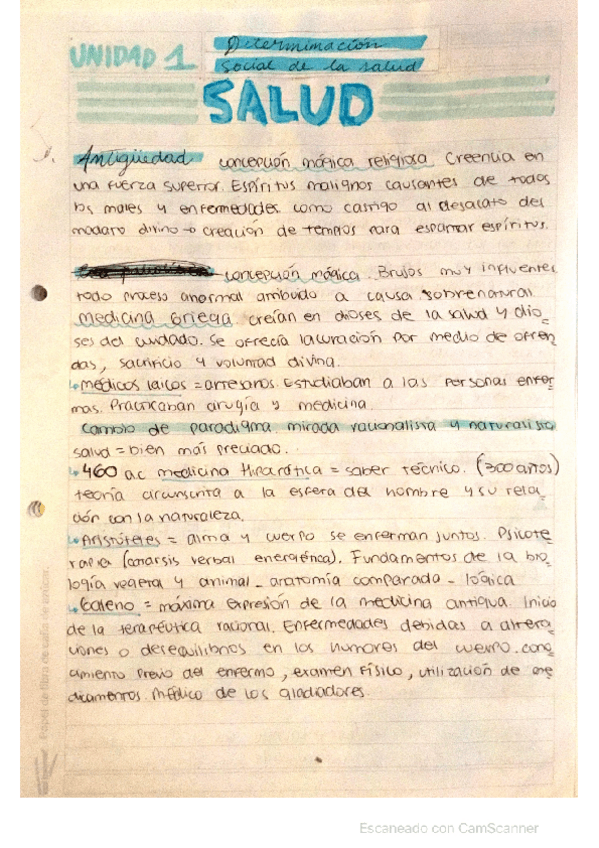 UNIDAD 1 Determinación
social de la salud
SALUD
Antigüedad concepción mágica religiosa. Creencia en
una fuerza superior. Espíritus malignos causantes de todos
los males y enfermedades. como castigo al desacato del
madato divino → creación de templos para espantar espíritus.
concepción mágica. Brujos muy influentes
todo proceso anormal atribuido a causa sobrenatural
medicina Griega creían en dioses de la salud y dio_
ses del cuidado. Se ofrecía la curación por medio de ofren
das, sacrificio y voluntad divina.
médicos laicos = artesanos. Estudiaban a las personas enfer
mas. Practicaban cirugía y medicina.
Cambio de paradigma. mirada racionalista y naturasista
salud = bien más preciado.
460 a.c medicina Hipocrática = saber técnico. (300 años)
teoría circunscrita a la esfera del hombre y su rela_
ción con la naturaleza.
Aristóteles = alma y cuerpo se enferman juntos. Psicote
rapia (catarsis verbal energética). Fundamentos de la bio_
logía vegeta y animal _ anatomía comparada _ lógica
Galeno = máxima expresión de la medicina antigua. Inicio
de la terapéutica racional. Enfermedades debidas a altera_
ciones o desequilibrios en los humores del cuerpo. cono_
cimiento previo del enfermo, examen físico, utilización de me
dicamentos. médico de los gladiadores.
Escaneado con CamScanner